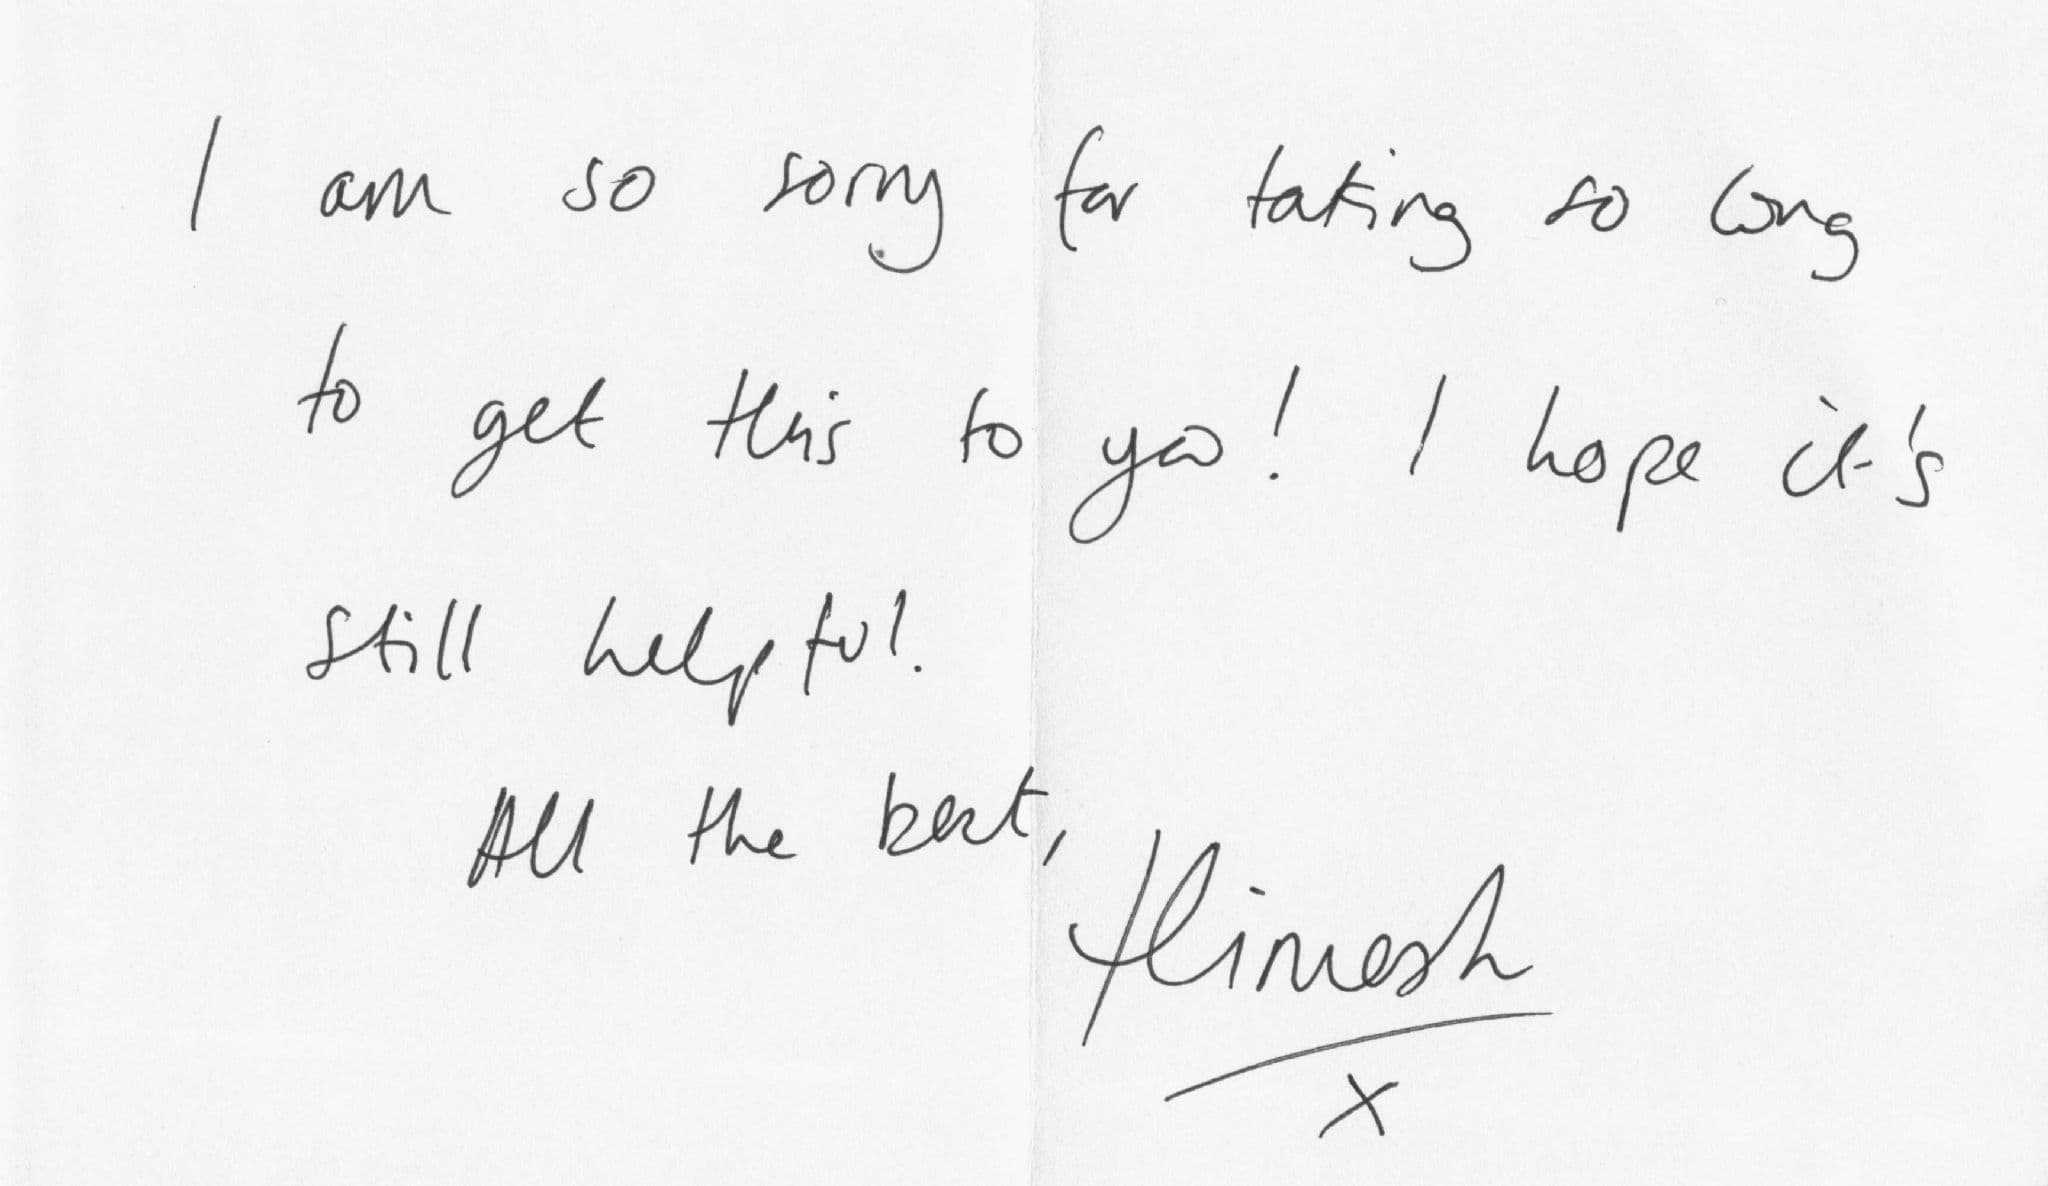 I am so sorry for taking so long
to get this to you! I hope it's
still helpful.
All the best,
Himesh
x